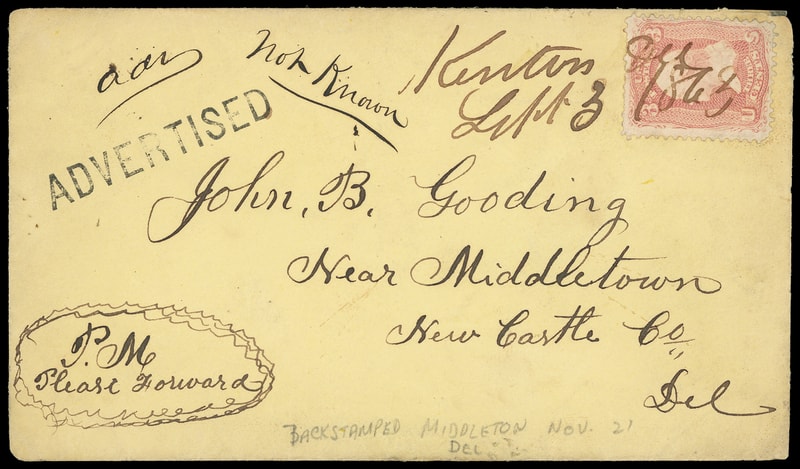 adv
Not Known
Kenton
Sept 3
1863
ADVERTISED
John, B. Gooding
Near Middletown
New Castle Co,,
Del
P. M
Please Forward
BACKSTAMPED MIDDLETON NOV. 21
DEL